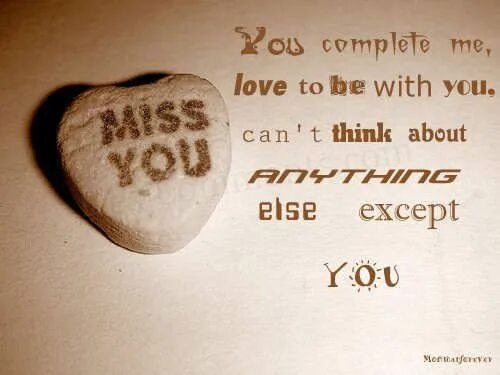 MISS
YOU
You complete me,
love to be with you,
can't think about
ANYTHING
else except
YOU